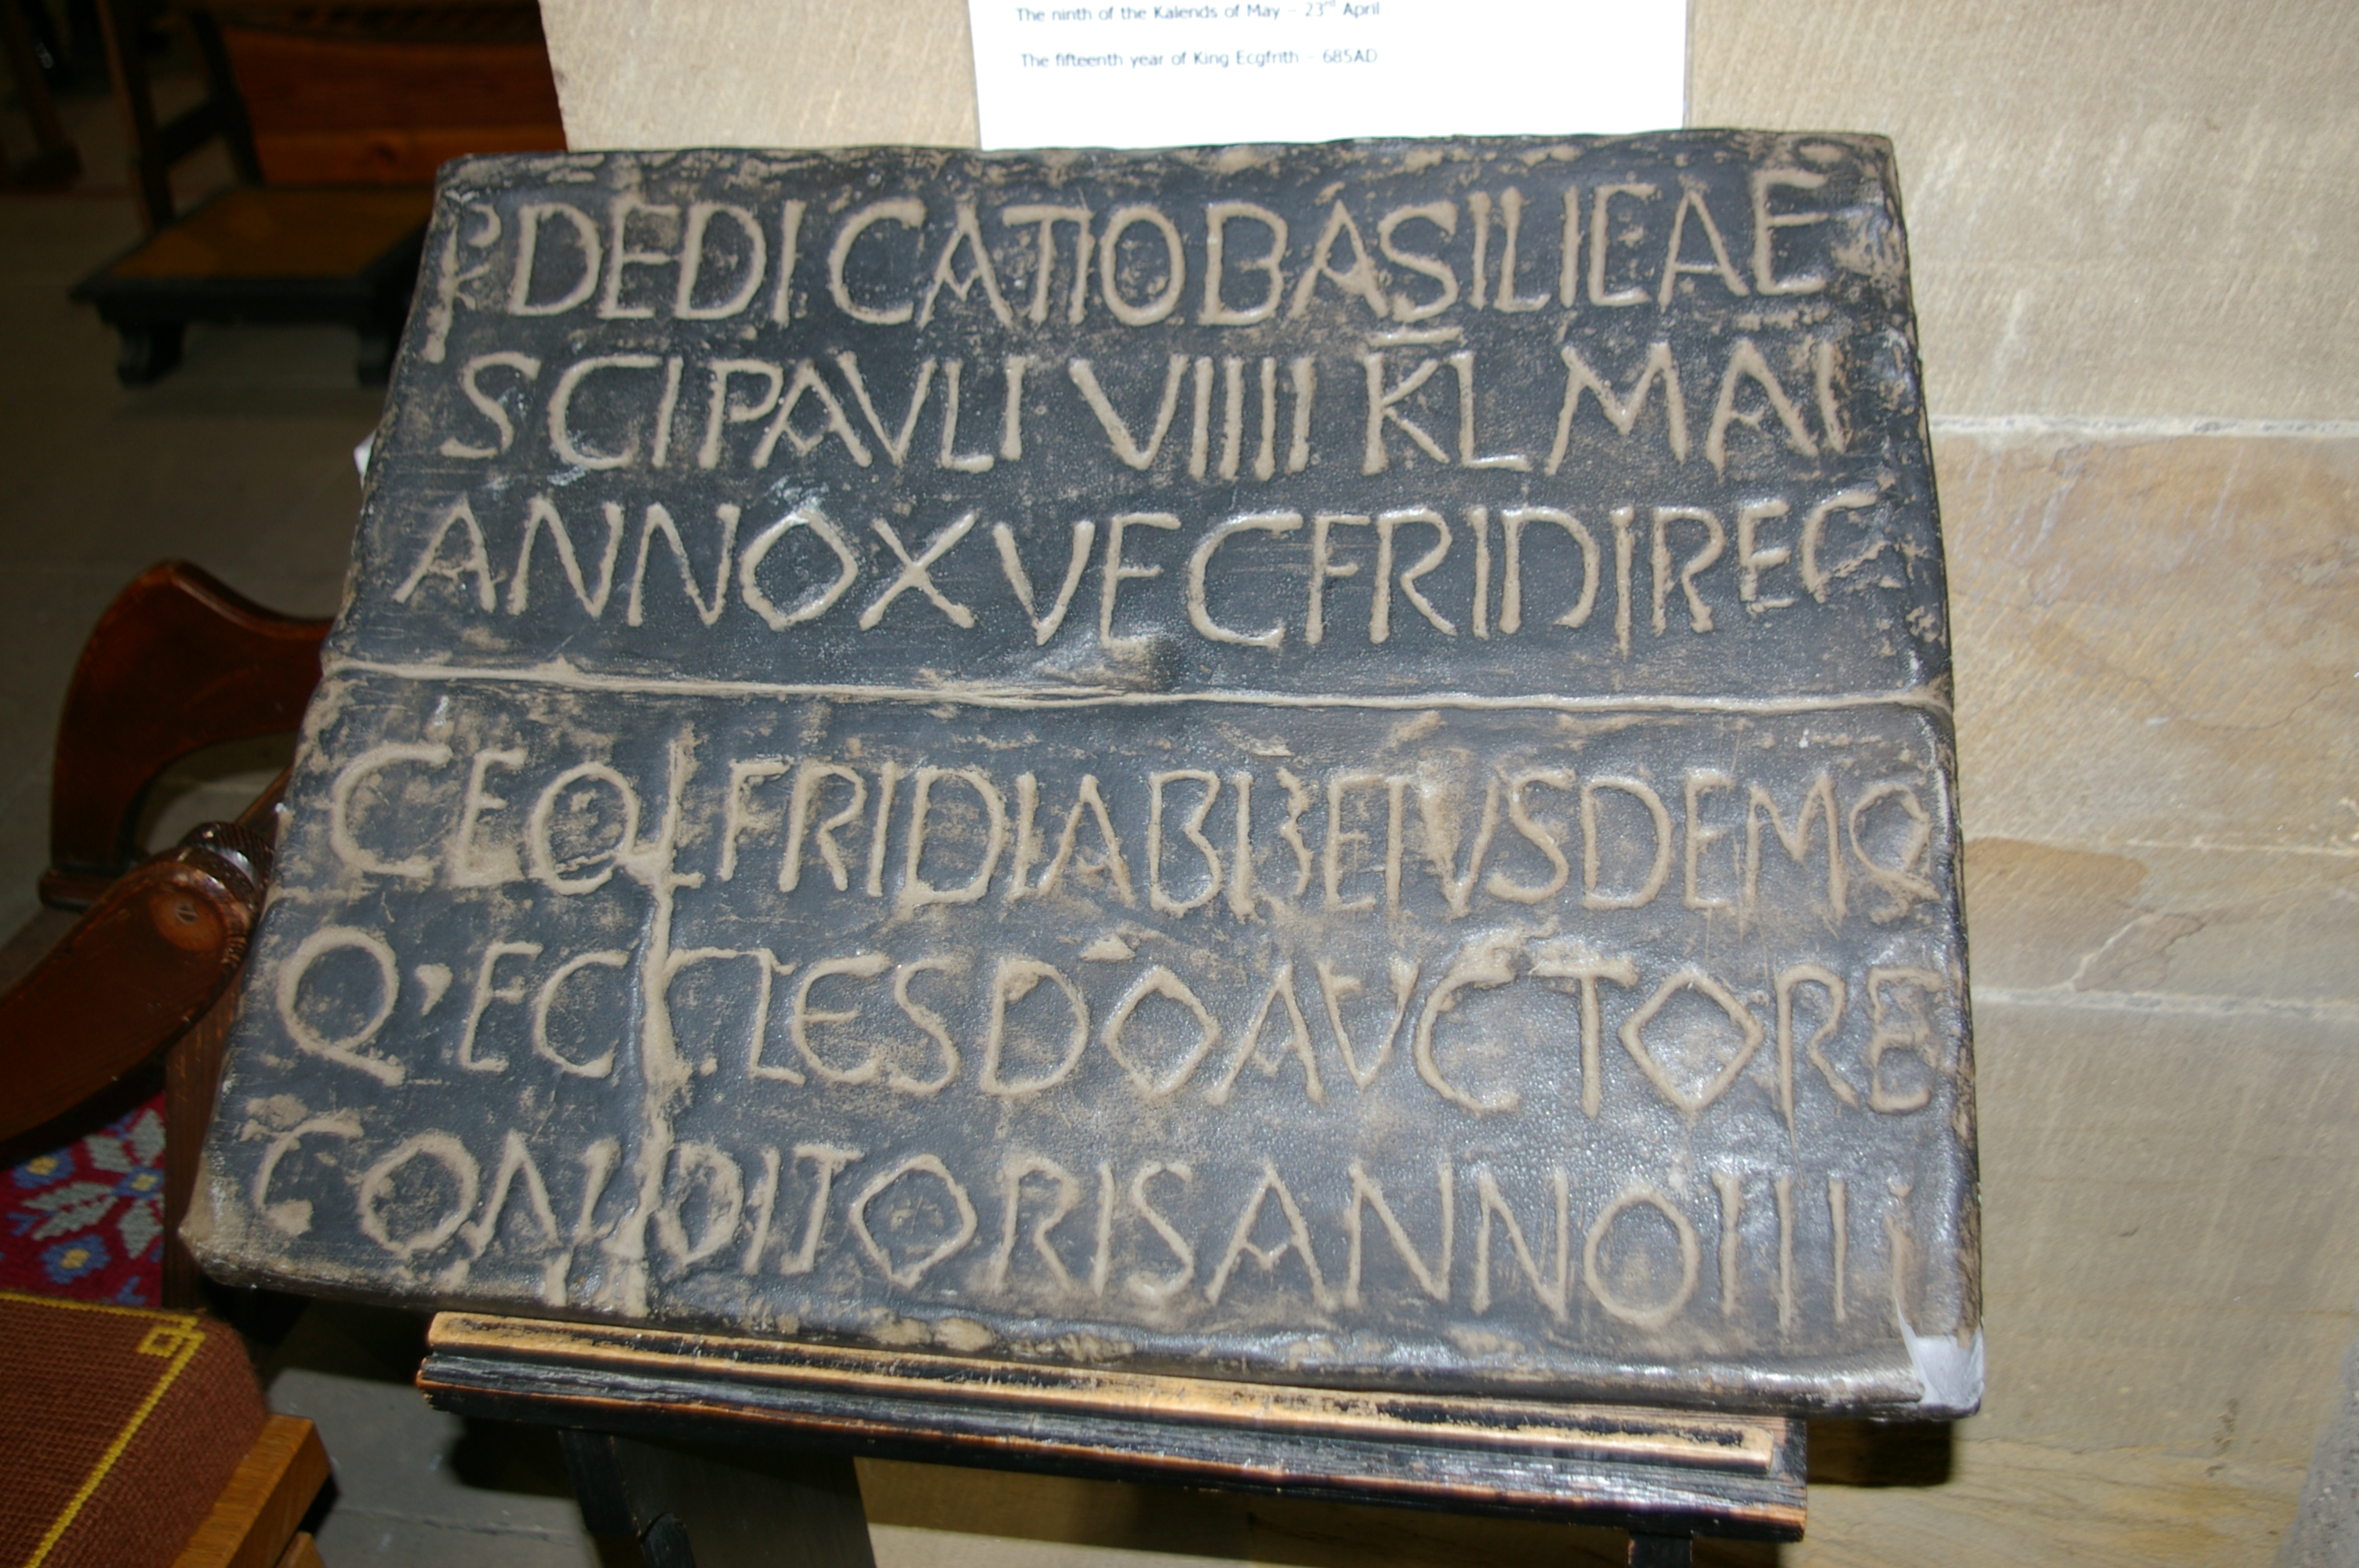 The ninth of the Kalends of May – 23rd April
The fifteenth year of King Ecgfrith – 685AD
⳨ DEDICATIO BASILICAE
SCI PAVLI VIIII K̄L MAI
ANNO XV ECFRIDI REG
CEOLFRIDI ABB EIVSDEMQ
Q' ECCLES DŌ AVCTORE
CONDITORIS ANNO IIII